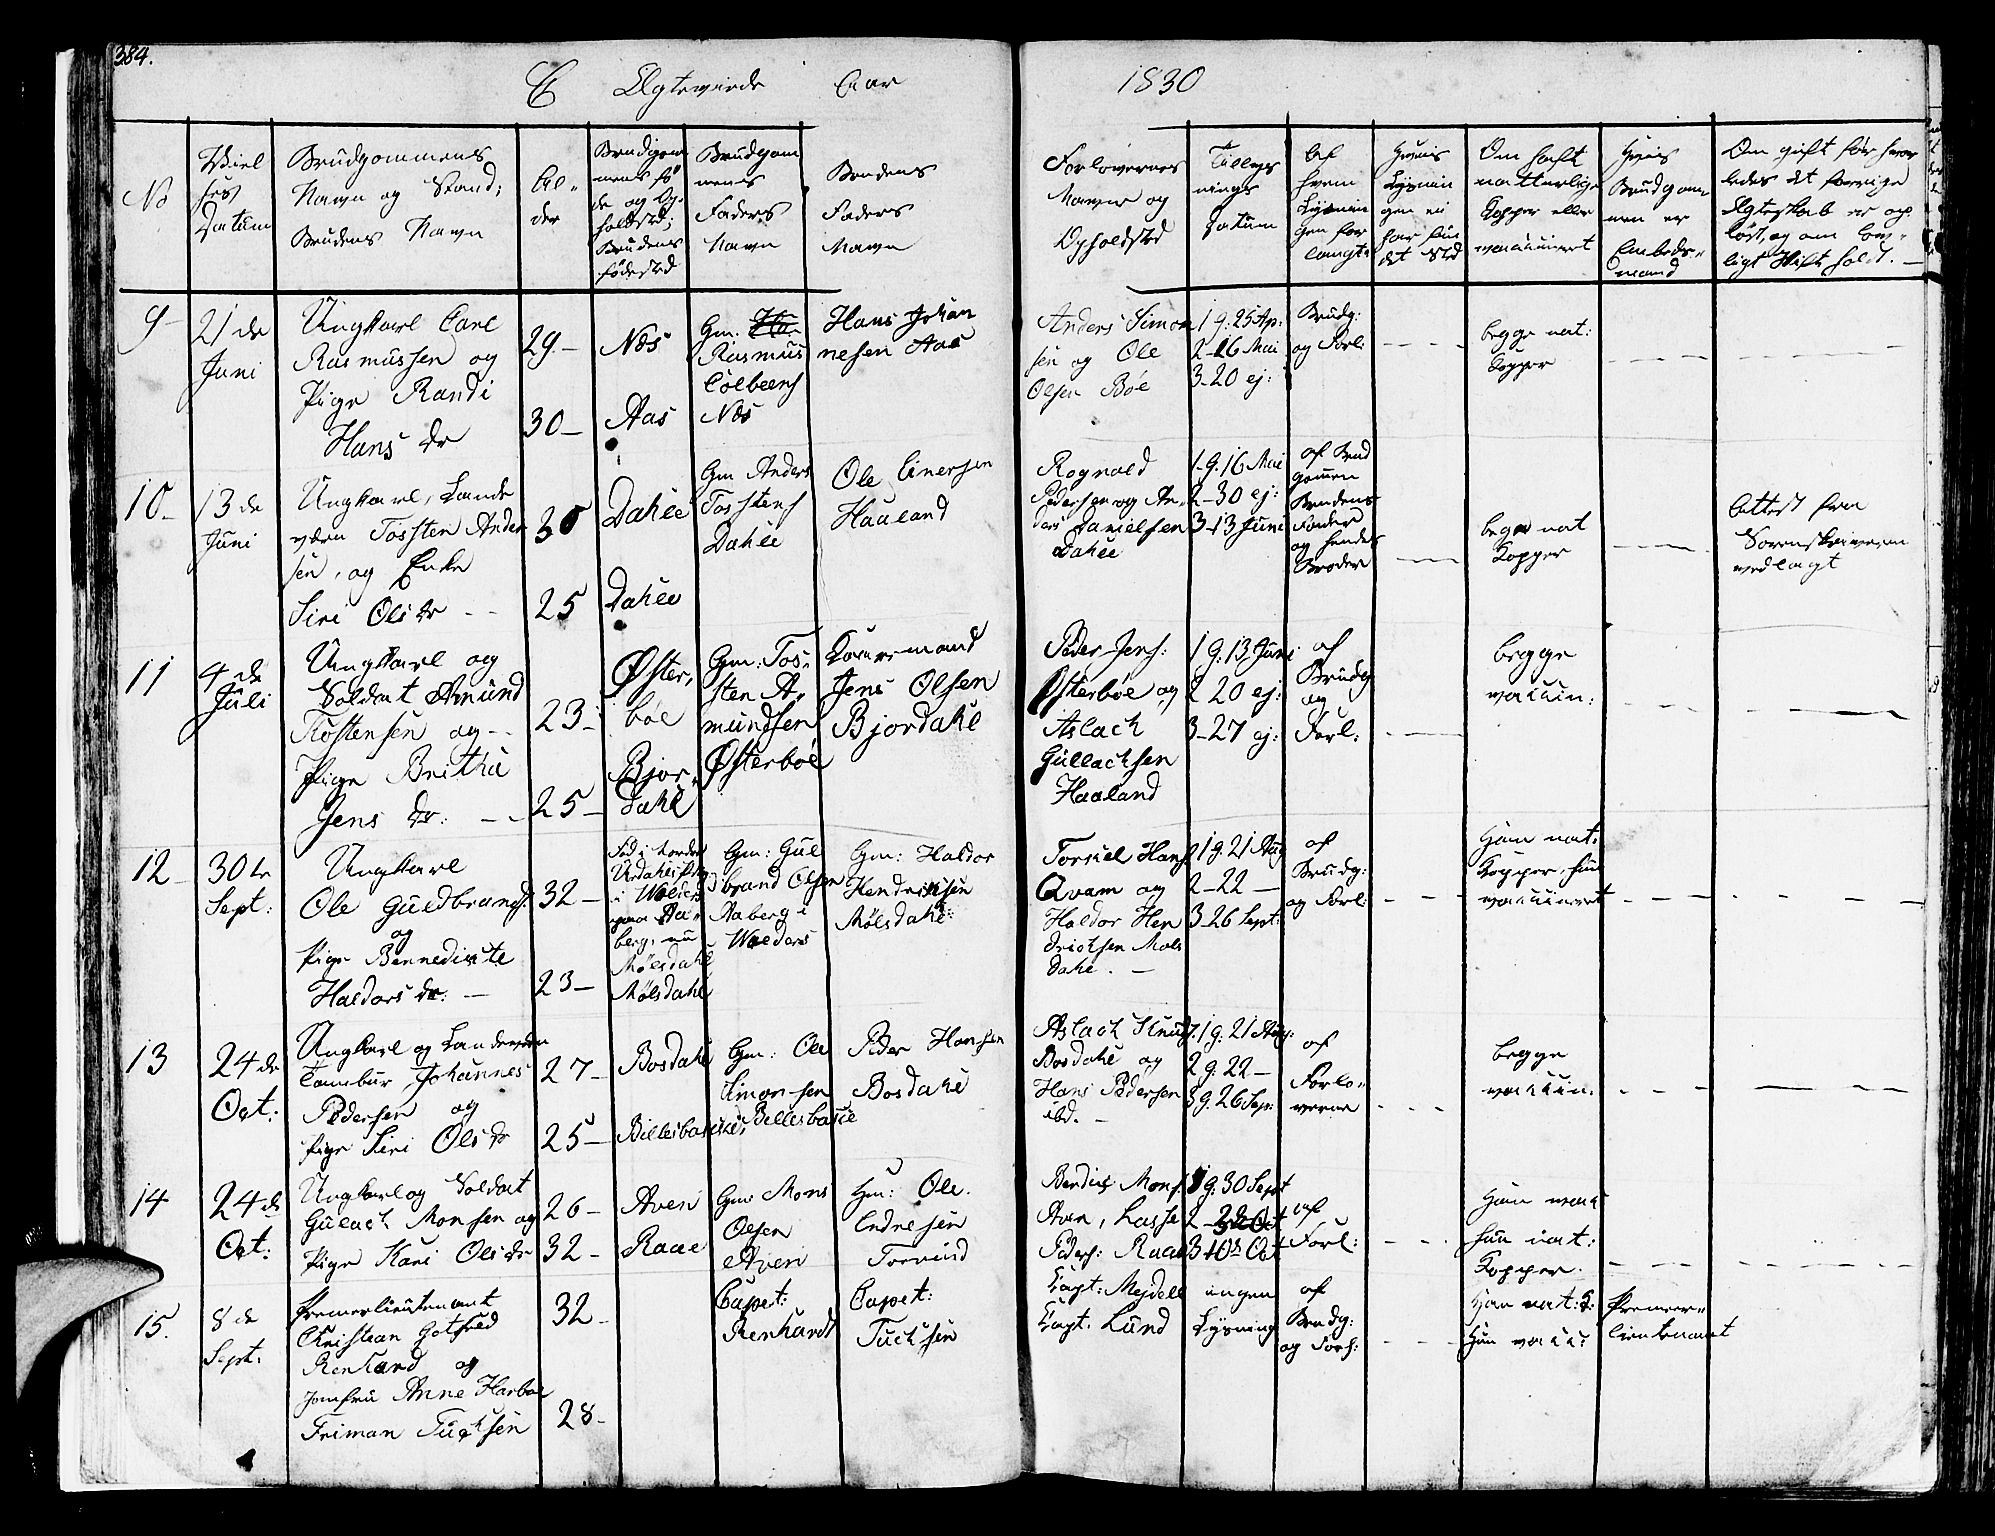 384.
C Ægteviede Aar 1830
No
Vielses Datum
Brudgommens Navn og Stand; Brudens Navn
Alder
Brudgommens føde og Opholdsted; Brudens fødested
Brudgommens Faders Navn
Brudens Faders Navn
Forlovernes Navne og Opholdsted
Tillysnings Datum
Af hvem Lysningen forlangt
Hvis Lysningen ei har fundet Sted
Om haft naturlige Kopper eller vaccineret
Hvis Brudgommen er Embedsmand
Om gift før, hvorledes det forrige Ægteskab er opløst, og om lovligt Skifte holdt.
9
21de Juni
Ungkarl Carl
Rasmussen og
Pige Randi
Hans Dr
29
30
Næs
Aas
Gm:
Rasmus
Colbeens
Næs
Hans Johan
nesen Aas
Anders Simon
sen og Ole
Olsen Böe
1 g: 25 Ap:
2-16 Mai
3-20 ej:
Brudg:
og Forl:
begge nat:
Kopper
10
13de Juni
Ungkarl, Lande
værn Tosten Ander
sen, og Enke
Siri Ols Dr
30
25
Dahle
Dahle
Gm Anders
Tostens
Dahle
Ole Einersen
Haaland
Rognald
Pedersen og An
ders Danielsen
Dahle
1 g: 16 Mai
2-30 ej:
3-13 Juni
af Brud
gommen
Brudens
Fader
og hendes
Broder
begge nat
Kopper
Attest fra
Sorenskriveren
vedlagt
11
4de Juli
Ungkarl og
Soldat Amund
Tostensen og
Pige Britha
Jens Dr:
23
25
Øster,
böe
Bjor
dahl
Gm: Tos,
sten A,
mundsen
Østerböe
Jens Olsen
Bjordahl
Peder Jens:
Østerböe og
Aslach
Gullachsen
Haaland
1 g: 13 Juni
2 20 ej:
3-27 ej:
af
Brudg
og
Forl:
begge
vaccin:
12
30te Sept:
Ungkarl
Ole Guldbrands:
og
Pige Bennedicte
Haldors Dr:
32
23
i Walders
paa Aa
berg, nu
Mølsdahl
Mølsdahl
Gm: Gul
brand Olsen
Aaberg i
Walders
Gm: Haldor
Hendricksen
Mølsdahl:
Torkiel Hans
Qvam og
Haldor Hen
dricksen Møls
dahl.
1 g: 21 Aug
2-22
3-26 Sept:
af
Brudg:
og Forl:
Han nat:
Kopper, hun
vaccineret
13
24de Oct:
Ungkarl og Landeværn
Tambur, Johannes
Pedersen og
Pige Siri Ols Dr
27
25
Bosdahl
Gm: Ole
Simonsen
Billesbakke
Peder Hansen
Bosdahl
Aslach Knuds.
Bosdahl og
Hans Pedersen
ibd.
1 g: 21 Aug:
2 g: 22
3 g: 26 Sep:
af
Forlo
verne
begge
vaccin:
14
24de Oct:
Ungkarl og Soldat
Gulach Monsen og
Pige Kari Ols Dr
26
32
Aven
Raae
Gm: Mons
Olsen
Aven
Gm: Ole
Endresen
Torvund
Bendix Mons.
Aven, Lasse
Peders: Raae
1 g: 30 Sept
3 10de Oct
af
Forl:
Han vacc
hun nat:
Kopper.
15.
8de Sept:
Premierlieutenant
Christian Gotfried
Renhard og
Jomfru Anne Harboe
Friman Tuchsen
32
28
Capet:
Renhardt
Capet:
Tuchsen
Capt: Mejdell
Capt. Lund
ingen
Lysning
af
Brudg:
og Forl:
Han nat: K:
Hun vacc:
Premier
lieutenant